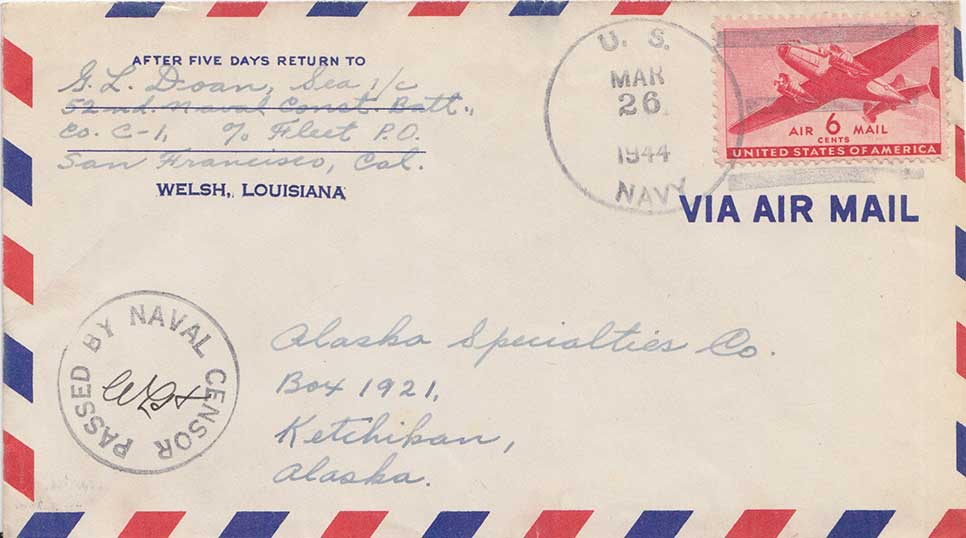 AFTER FIVE DAYS RETURN TO
G. L. Doan, Sea 1/c
52nd. Naval Const. Batt.,
Co. C-1, % Fleet P.O.
San Francisco, Cal.
WELSH, LOUISIANA
U. S.
MAR
26
1944
NAVY
AIR 6 MAIL
CENTS
UNITED STATES OF AMERICA
VIA AIR MAIL
PASSED BY NAVAL CENSOR
Alaska Specialties Co.
Box 1921,
Ketchikan,
Alaska.